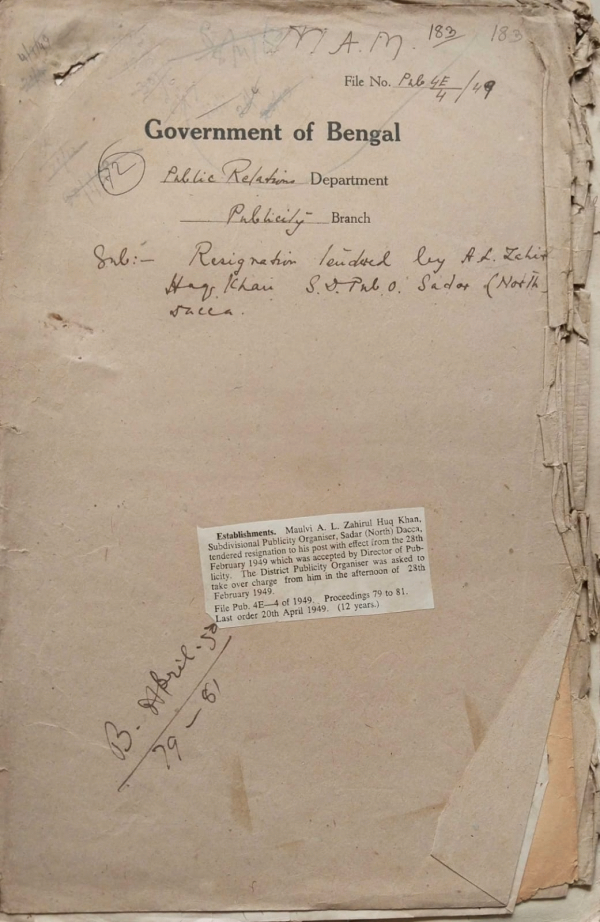 M. A. M. 183 183
File No. Pub 4E/4 /49
Government of Bengal
72 Public Relations Department
Publicity Branch
Sub:- Resignation tendred by A. L. Zahir
Haq Khan S. D. Pub O. Sadar (North
Dacca.
Establishments. Maulvi A. L. Zahirul Huq Khan,
Subdivisional Publicity Organiser, Sadar (North) Dacca,
tendered resignation to his post with effect from the 28th
February 1949 which was accepted by Director of Pub-
licity. The District Publicity Organiser was asked to
take over charge from him in the afternoon of 28th
February 1949.
File Pub. 4E—4 of 1949. Proceedings 79 to 81.
Last order 20th April 1949. (12 years.)
B. April-50
79-81